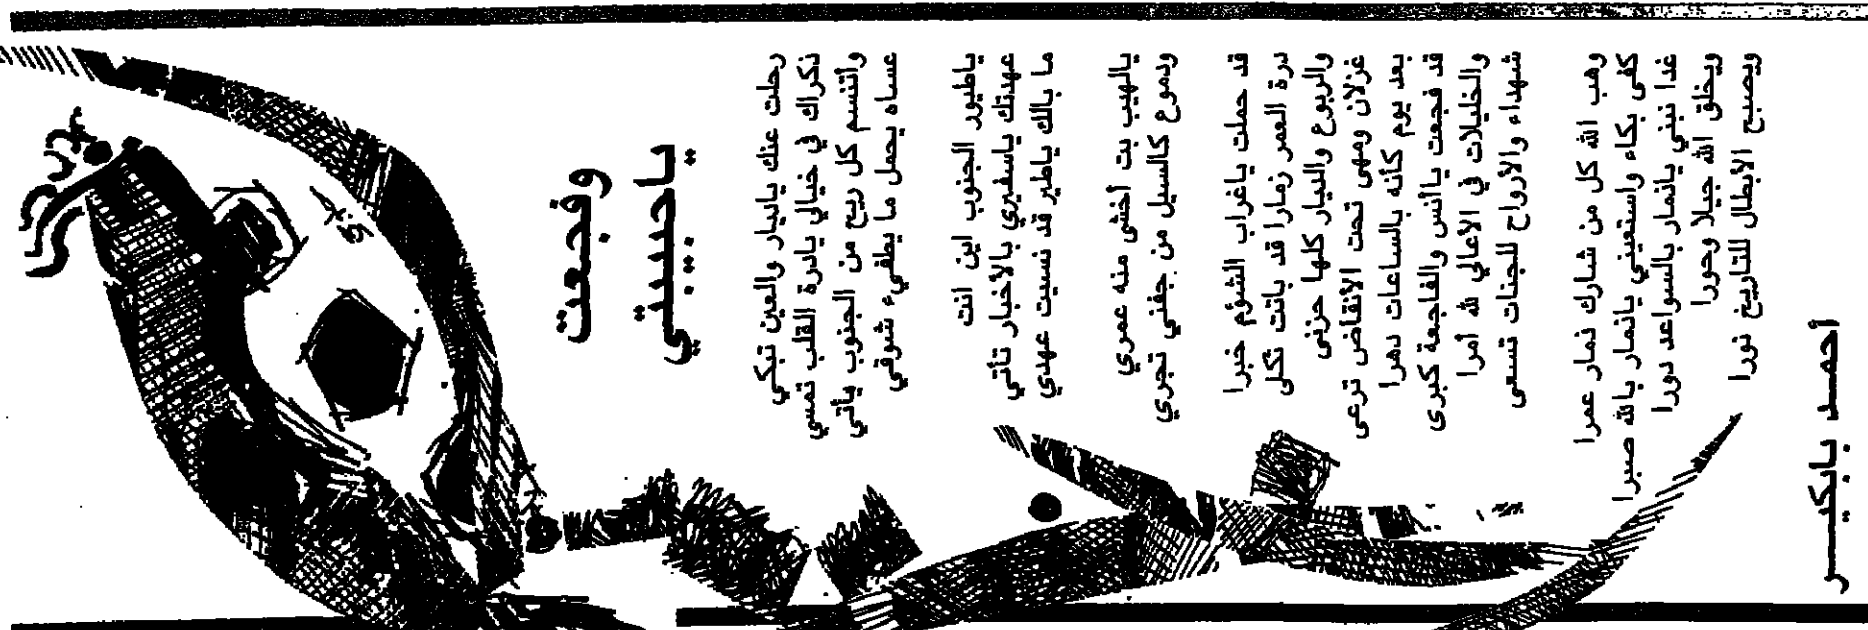 وفجعت
ياحبيبتي
رحلت عنك ياديار والعين تبكي
ذكراك في خيالي يادرة القلب تمسي
وأتنسم كل ريح من الجنوب يأتي
عساه يحمل ما يطفيء شوقي
ياطيور الجنوب اين انت
عهدتك ياسفيري بالأخبار تأتي
ما بالك ياطير قد نسيت عهدي
يالهيب بت أخشى منه عمري
ودموع كالسيل من جفني تجري
قد حملت ياغراب الشؤم خبرا
درة العمر زمارا قد باتت ثكلى
والربوع والديار كلها حزنى
غزلان ومهى تحت الأنقاض ترعى
بعد يوم كأنه بالساعات دهرا
قد فجعت ياأنس والفاجعة كبرى
والخليلات في الأعالي لله أمرا
شهداء والأرواح للجنات تسعى
وهب الله كل من شارك ذمار عمرا
كفى بكاء واستعيني ياذمار بالله صبرا
غدا نبني ياذمار بالسواعد دورا
ويخلق الله جيلا وحورا
ويصبح الأبطال للتاريخ نورا
أحمد بابكير